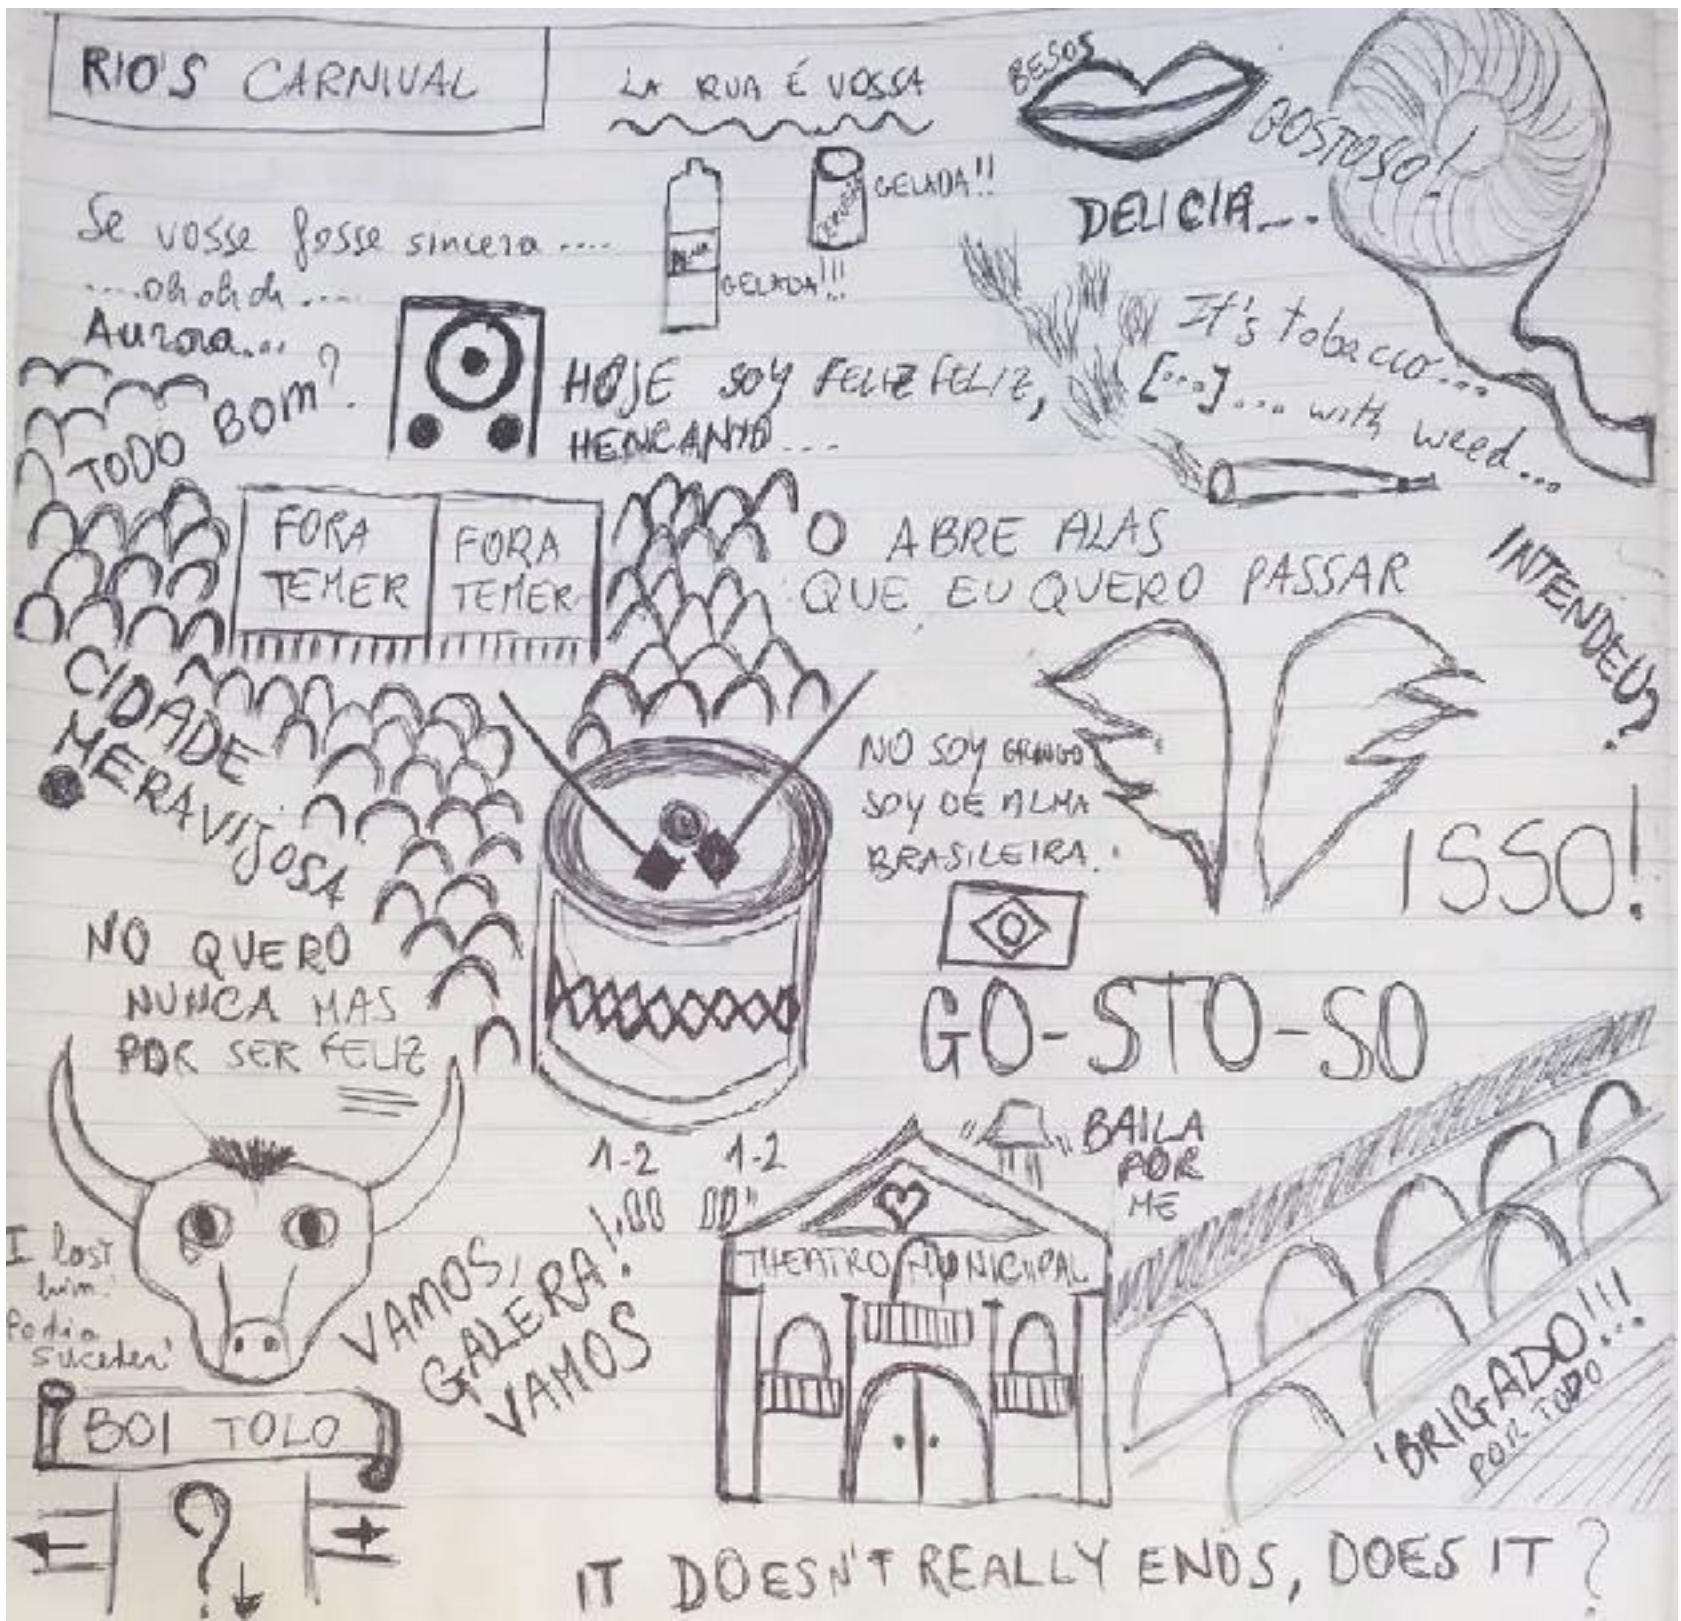 RIO'S CARNIVAL
LA RUA É VOSSA
BESOS
GOSTOSO!
DELICIA...
GELADA!!
GELADA!!!
Se vosse fosse sincera ....
....oh oh oh ....
Aurora...
TODO BOM?
HOJE SOY FELIZ FELIZ,
HENCANTO ....
It's tobacco...
[...].... with weed...
FORA
TEMER
FORA
TEMER
O ABRE ALAS
QUE EU QUERO PASSAR
INTENDEU?
CIDADE
MERAVIJOSA
NO SOY GRINGO
SOY DE ALMA
BRASILEIRA.
ISSO!
NO QUERO
NUNCA MAS
POR SER FELIZ
GO-STO-SO
1-2 1-2
BAILA
POR
ME
I lost
him!
Podia
suceder'
VAMOS,
GALERA!
VAMOS
THEATRO MUNICIPAL
'BRIGADO!!!
POR TODO
BOI TOLO
?
IT DOESN'T REALLY ENDS, DOES IT?